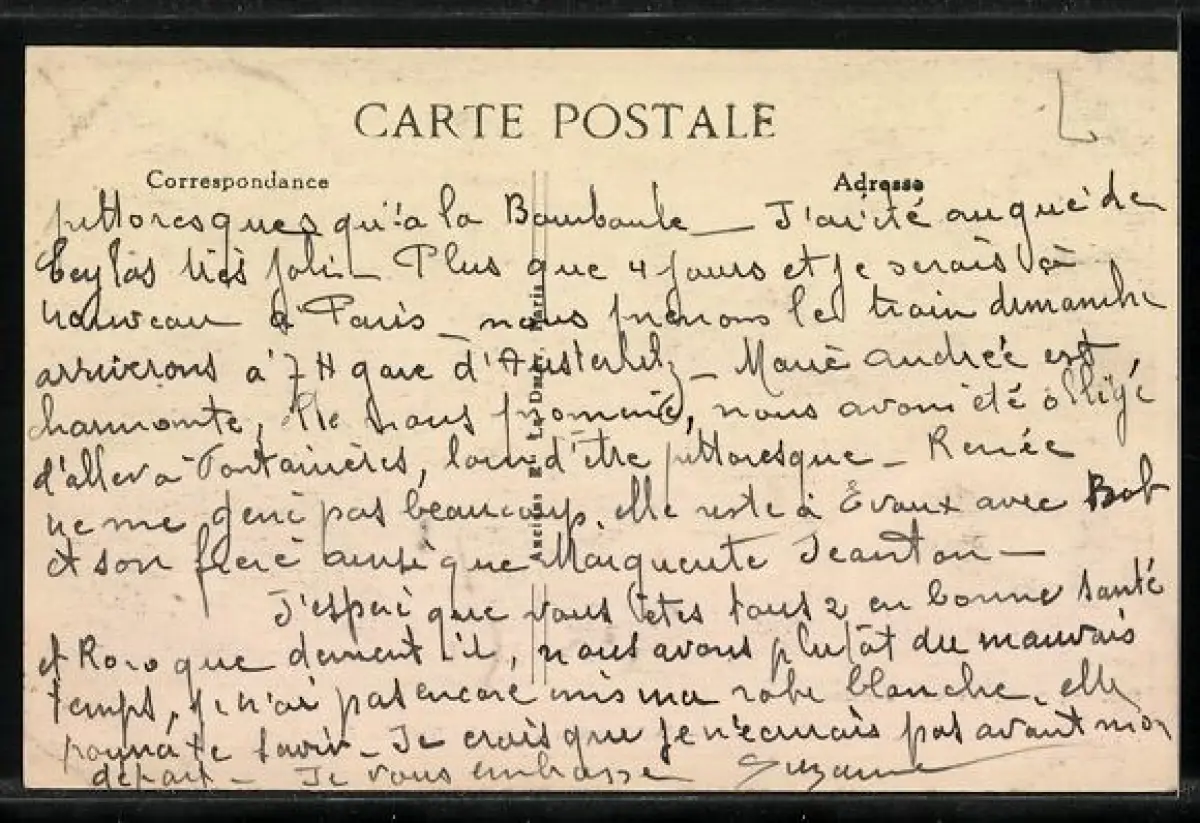 CARTE POSTALE
Correspondance
Adresse
pittoresques qu'à la Bourboule _ J'ai été au gué de
très joli _ Plus que 4 jours et je serais à
nouveau à Paris _ nous prenons le train dimanche
arriverons à 7 H gare d'Austerlitz _ Marie Andrée est
charmante, elle nous promène, nous avons été obligé
d'aller à Fontanières, loin d'être pittoresque _ Renée
ne me gène pas beaucoup, elle reste à Évaux avec Bob
et son frère ainsi que Marguerite Jeanton _
J'espère que vous êtes tous 2 en bonne santé
et que devient il, nous avons plutôt du mauvais
temps, je n'ai pas encore mis ma robe blanche, elle
pourra te _ Je crois que je n'écrirais pas avant mon
départ _ Je vous embrasse Suzanne
Anciens Et. La Paris